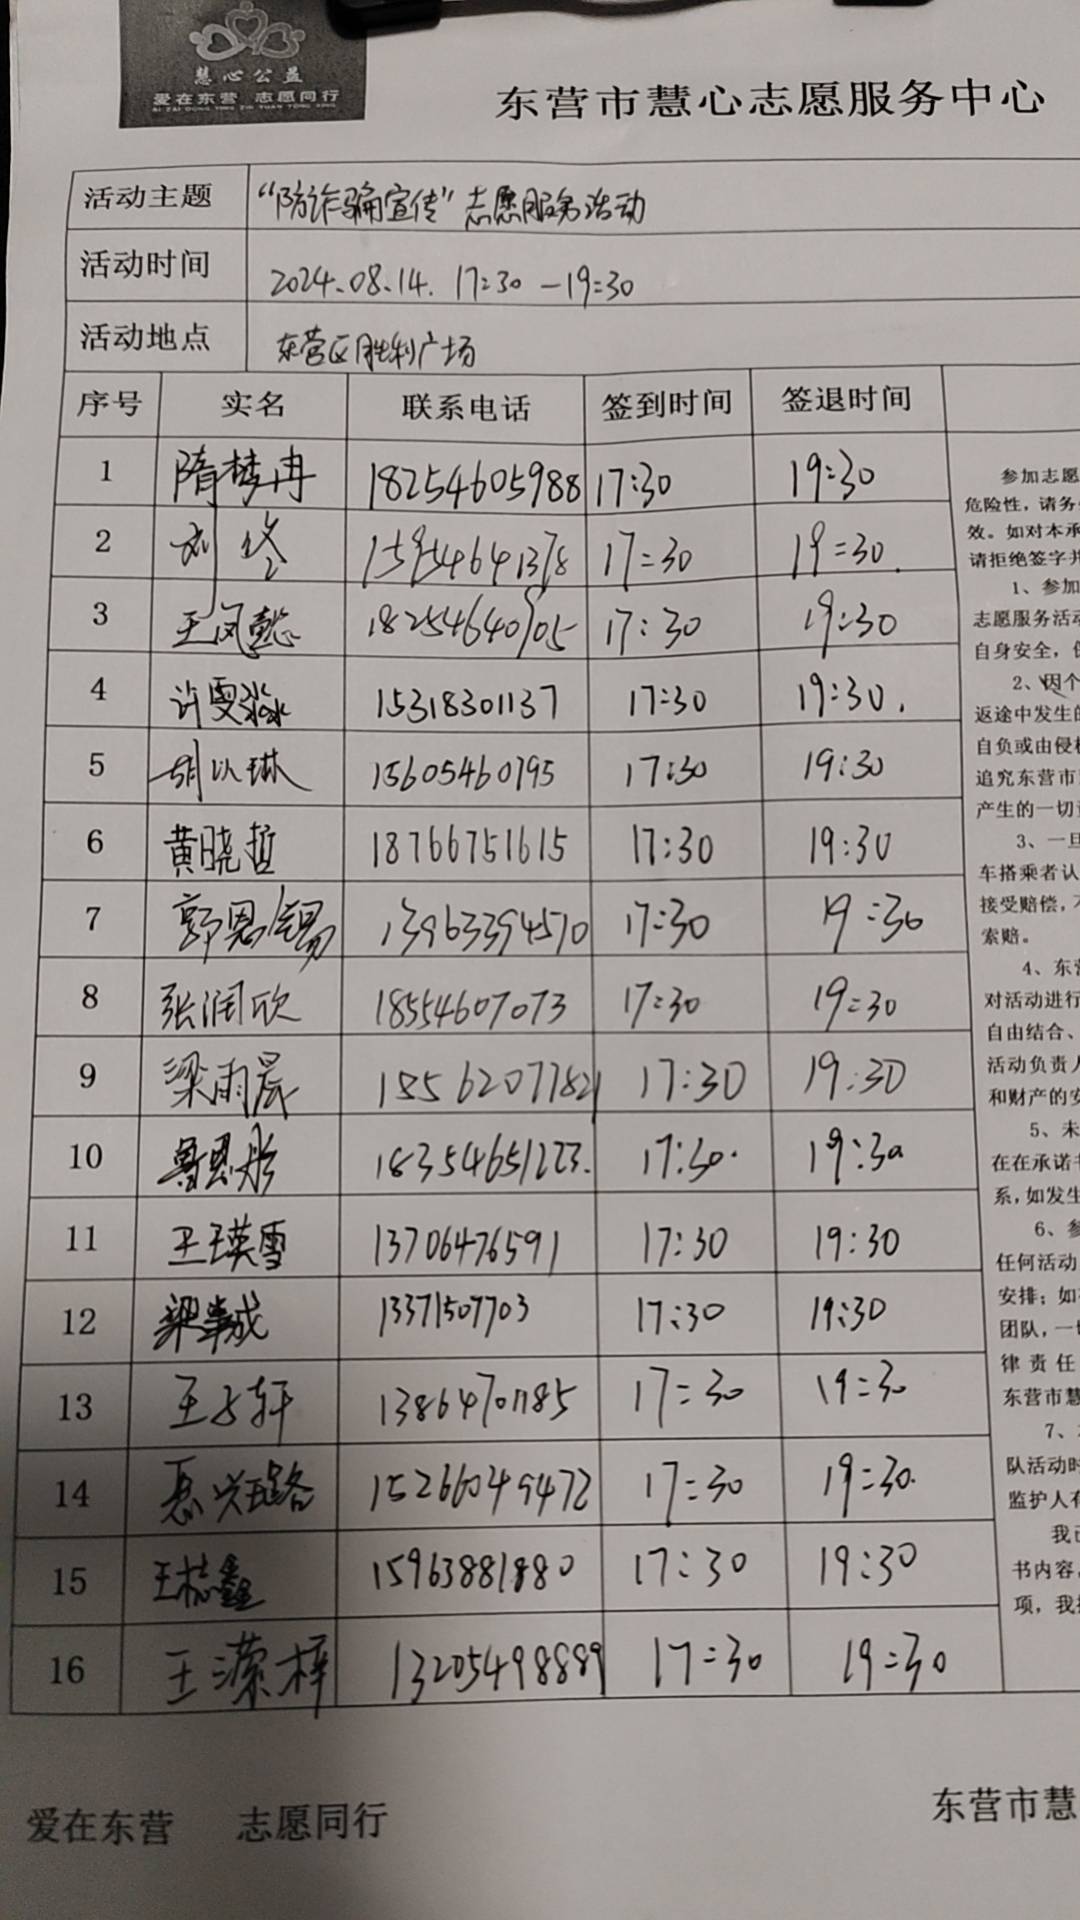 慧心公益
爱在东营 志愿同行
AI ZAI DONG YING ZHI YUAN TONG XING
东营市慧心志愿服务中心
活动主题 “防诈骗宣传”志愿服务活动
活动时间 2024.08.14. 17:30 —19:30
活动地点 东营区胜利广场
序号 实名 联系电话 签到时间 签退时间
1 隋梦冉 18254605988 17:30 19:30
2 刘佟 15954641378 17:30 19:30.
3 王凤懿 18254640905 17:30 19:30
4 许雯淼 15318301137 17:30 19:30.
5 胡以琳 15605460795 17:30 19:30
6 黄晓哲 18766751615 17:30 19:30
7 郭恩锡 13963394570 17:30 19:30
8 张润欣 18554607073 17:30 19:30
9 梁雨晨 15562077821 17:30 19:30
10 鲁恩彤 18354651223. 17:30. 19:30
11 王瑛雪 13706476591 17:30 19:30
12 13371507703 17:30 19:30
13 王子轩 13864701185 17:30 19:30
14 15266049472 17:30 19:30.
15 王梽鑫 15963881880 17:30 19:30
16 王潆梓 13205498889 17:30 19:30
参加志愿
危险性，请务
效。如对本承
请拒绝签字并
1、参加
志愿服务活动
自身安全，
2、因个
返途中发生的
自负或由侵权
追究东营市
产生的一切
3、一旦
车搭乘者认
接受赔偿，
索赔。
4、东营
对活动进行
自由结合、
活动负责人
和财产的安
5、未
在在承诺书
系，如发生
6、参
任何活动
安排；如
团队，一切
律责任
东营市慧
7、
队活动时
监护人有
我已
书内容，
项，我
爱在东营 志愿同行
东营市慧